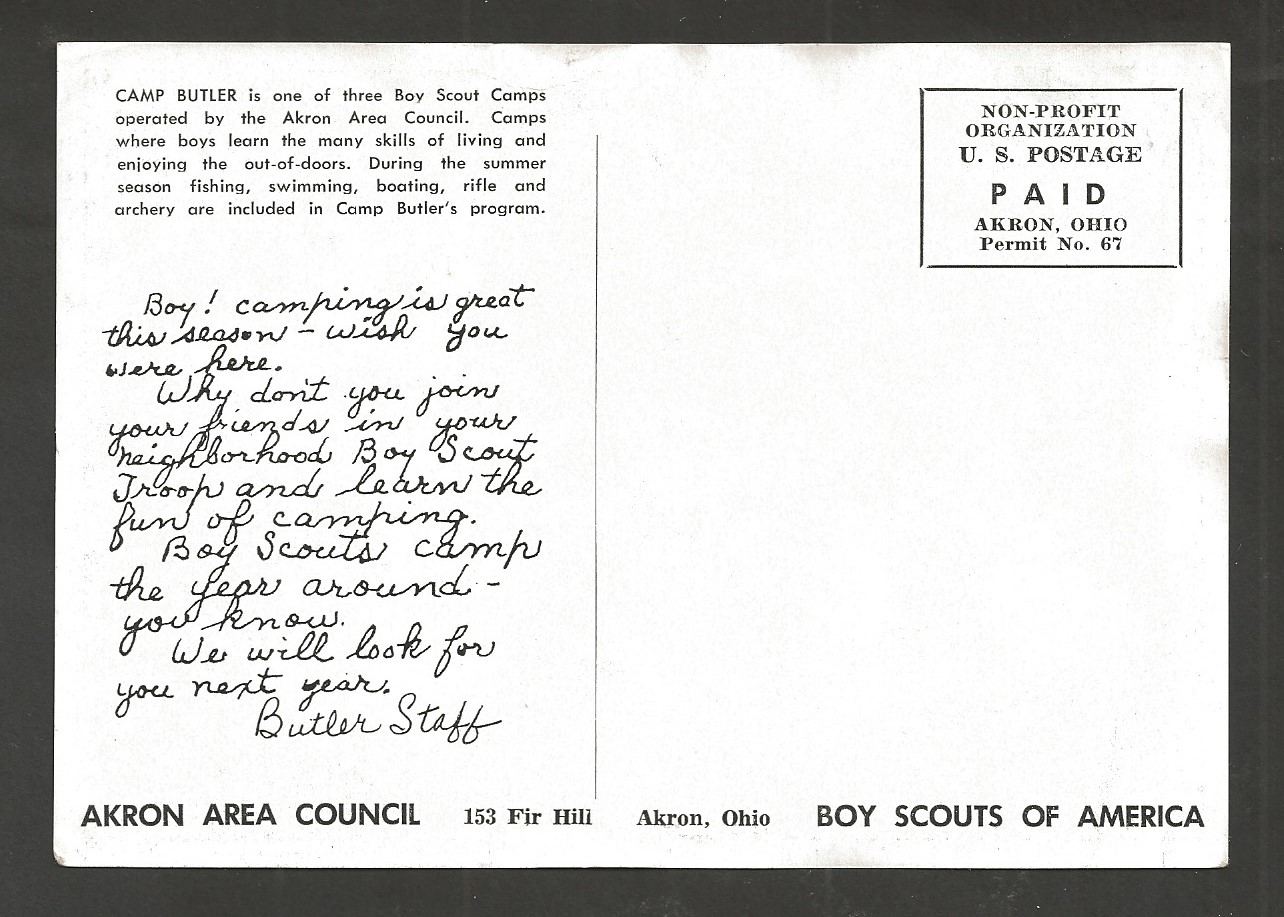 CAMP BUTLER is one of three Boy Scout Camps
operated by the Akron Area Council. Camps
where boys learn the many skills of living and
enjoying the out-of-doors. During the summer
season fishing, swimming, boating, rifle and
archery are included in Camp Butler's program.
Boy! camping is great
this season - wish you
were here.
Why don't you join
your friends in your
neighborhood Boy Scout
Troop and learn the
fun of camping.
Boy Scouts camp
the year around -
you know.
We will look for
you next year.
Butler Staff
NON-PROFIT
ORGANIZATION
U. S. POSTAGE
PAID
AKRON, OHIO
Permit No. 67
AKRON AREA COUNCIL 153 Fir Hill Akron, Ohio BOY SCOUTS OF AMERICA